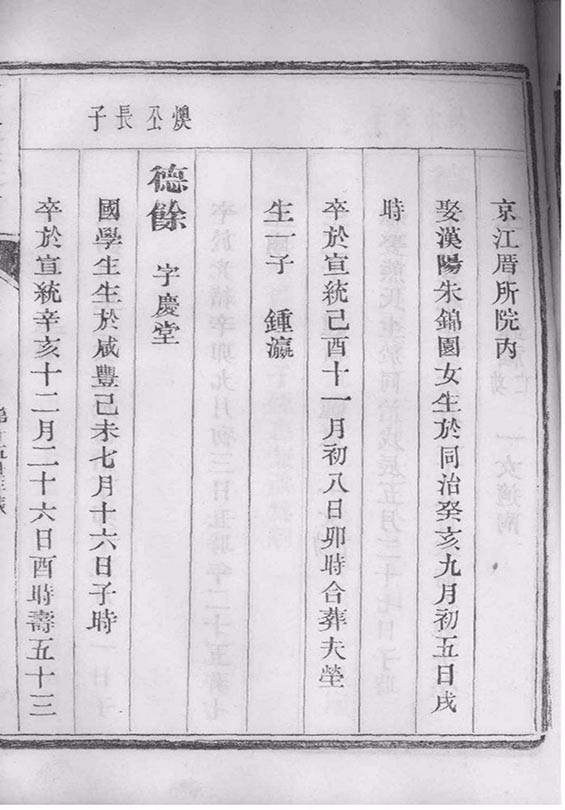 京江厝所院内
娶漢陽朱錦園女生於同治癸亥九月初五日戌
時
卒於宣統己酉十一月初八日卯時合葬夫塋
生一子 鍾瀛
煥公長子
德餘 字慶堂
國學生生於咸豐己未七月十六日子時
卒於宣統辛亥十二月二十六日酉時壽五十三